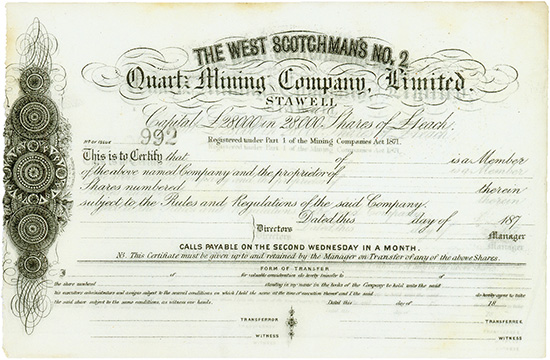 THE WEST SCOTCHMAN'S NO. 2
Quartz Mining Company, Limited.
STAWELL
Capital £28,000 in 28,000 Shares of £1 each.
Nº OF ISSUE
992
Registered under Part 1 of the Mining Companies Act 1871.
This is to Certify that of is a Member
of the above named Company and the proprietor of
Shares numbered therein
subject to the Rules and Regulations of the said Company.
Dated this day of 187
Directors Manager
CALLS PAYABLE ON THE SECOND WEDNESDAY IN A MONTH.
NB. This Certificate must be given up to and retained by the Manager on Transfer of any of the above Shares.
FORM OF TRANSFER
I of for valuable consideration do hereby transfer to of
the share numbered standing in my name in the books of the Company to hold unto the said
his executors administrators and assigns subject to the several conditions on which I held the same at the time of execution thereof and I the said do hereby agree to take
the said share subject to the same conditions, as witness our hands. Dated this day of 18
TRANSFERROR TRANSFEREE
WITNESS WITNESS